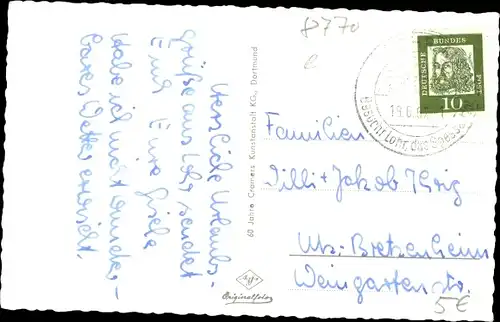 8770
Herzliche Urlaubs-
grüße aus Lohr sendet
Euch Eure Gisela
Habe ich nicht wunder-
bares Wetter erwischt.
60 Jahre Cramers Kunstanstalt KG., Dortmund
Originalfoto
DEUTSCHE BUNDES POST
10
19.6.
Besucht Lohr, das
Familien
Tilli + Jakob
Mz. Bretzenheim
Weingarten-str.
5€